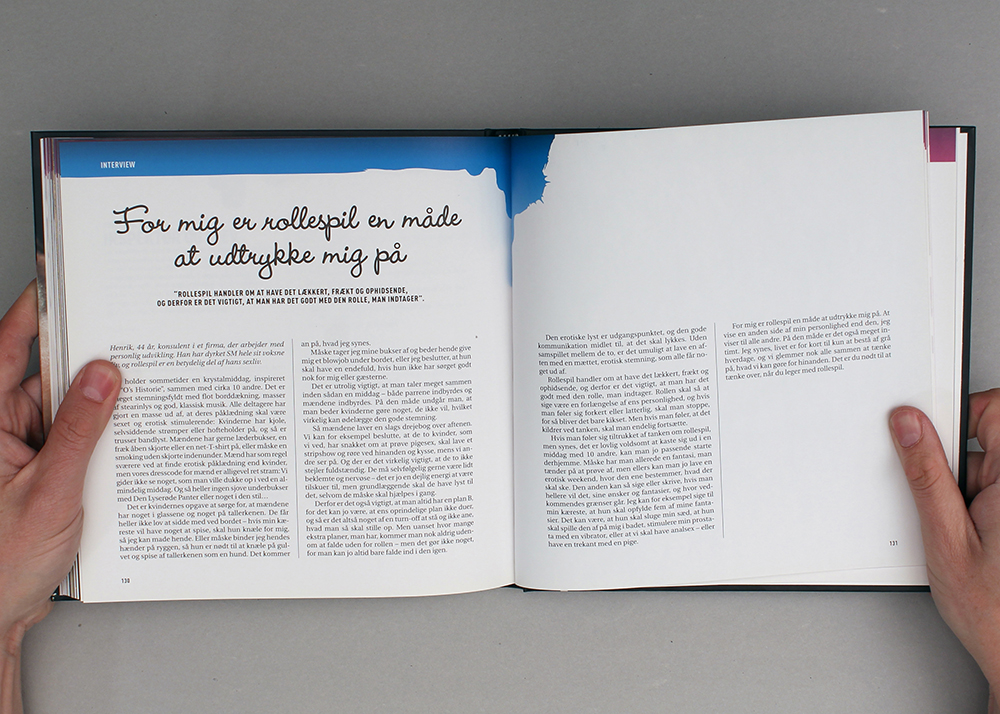 INTERVIEW
For mig er rollespil en måde
at udtrykke mig på
"ROLLESPIL HANDLER OM AT HAVE DET LÆKKERT, FRÆKT OG OPHIDSENDE,
OG DERFOR ER DET VIGTIGT, AT MAN HAR DET GODT MED DEN ROLLE, MAN INDTAGER".
Henrik, 44 år, konsulent i et firma, der arbejder med
personlig udvikling. Han har dyrket SM hele sit voksne
og rollespil er en betydelig del af hans sexliv.
holder sommetider en krystalmiddag, inspireret
"O's Historie", sammen med cirka 10 andre. Det er
meget stemningsfyldt med flot borddækning, masser
af stearinlys og god, klassisk musik. Alle deltagere har
gjort en masse ud af, at deres påklædning skal være
sexet og erotisk stimulerende: Kvinderne har kjole,
selvsiddende strømper eller hofteholder på, og så er
trusser bandlyst. Mændene har gerne læderbukser, en
fræk åben skjorte eller en net-T-shirt på, eller måske en
smoking uden skjorte indenunder. Mænd har som regel
sværere ved at finde erotisk påklædning end kvinder,
men vores dresscode for mænd er alligevel ret stram: Vi
gider ikke se noget, som man ville dukke op i ved en al-
mindelig middag. Og så heller ingen sjove underbukser
med Den Lyserøde Panter eller noget i den stil...
Det er kvindernes opgave at sørge for, at mændene
har noget i glassene og noget på tallerkenen. De får
heller ikke lov at sidde med ved bordet – hvis min kæ-
reste vil have noget at spise, skal hun knæle for mig,
så jeg kan made hende. Eller måske binder jeg hendes
hænder på ryggen, så hun er nødt til at knæle på gul-
vet og spise af tallerkenen som en hund. Det kommer
an på, hvad jeg synes.
Måske tager jeg mine bukser af og beder hende give
mig et blowjob under bordet, eller jeg beslutter, at hun
skal have en endefuld, hvis hun ikke har sørget godt
nok for mig eller gæsterne.
Det er utrolig vigtigt, at man taler meget sammen
inden sådan en middag – både parrene indbyrdes og
mændene indbyrdes. På den måde undgår man, at
man beder kvinderne gøre noget, de ikke vil, hvilket
virkelig kan ødelægge den gode stemning.
Så mændene laver en slags drejebog over aftenen.
Vi kan for eksempel beslutte, at de to kvinder, som
vi ved, har snakket om at prøve pigesex, skal lave et
stripshow og røre ved hinanden og kysse, mens vi an-
dre ser på. Og der er det virkelig vigtigt, at de to ikke
stejler fuldstændig. De må selvfølgelig gerne være lidt
beklemte og nervøse – det er jo en dejlig energi at være
tilskuer til, men grundlæggende skal de have lyst til
det, selvom de måske skal hjælpes i gang.
Derfor er det også vigtigt, at man altid har en plan B,
for det kan jo være, at ens oprindelige plan ikke duer,
og så er det altså noget af en turn-off at stå og ikke ane,
hvad man så skal stille op. Men uanset hvor mange
ekstra planer, man har, kommer man nok aldrig uden-
om at falde uden for rollen – men det gør ikke noget,
for man kan jo altid bare falde ind i den igen.
130
Den erotiske lyst er udgangspunktet, og den gode
kommunikation midlet til, at det skal lykkes. Uden
samspillet mellem de to, er det umuligt at lave en af-
ten med en mættet, erotisk stemning, som alle får no-
get ud af.
Rollespil handler om at have det lækkert, frækt og
ophidsende, og derfor er det vigtigt, at man har det
godt med den rolle, man indtager. Rollen skal så at
sige være en forlængelse af ens personlighed, og hvis
man føler sig forkert eller latterlig, skal man stoppe,
for så bliver det bare kikset. Men hvis man føler, at det
kildrer ved tanken, skal man endelig fortsætte.
Hvis man føler sig tiltrukket af tanken om rollespil,
men synes, det er lovlig voldsomt at kaste sig ud i en
middag med 10 andre, kan man jo passende starte
derhjemme. Måske har man allerede en fantasi, man
tænder på at prøve af, men ellers kan man jo lave en
erotisk weekend, hvor den ene bestemmer, hvad der
skal ske. Den anden kan så sige eller skrive, hvis man
hellere vil det, sine ønsker og fantasier, og hvor ved-
kommendes grænser går. Jeg kan for eksempel sige til
min kæreste, at hun skal opfylde fem af mine fanta-
sier. Det kan være, at hun skal sluge min sæd, at hun
skal spille den af på mig i badet, stimulere min prosta-
ta med en vibrator, eller at vi skal have analsex – eller
have en trekant med en pige.
For mig er rollespil en måde at udtrykke mig på. At
vise en anden side af min personlighed end den, jeg
viser til alle andre. På den måde er det også meget in-
timt. Jeg synes, livet er for kort til kun at bestå af grå
hverdage, og vi glemmer nok alle sammen at tænke
på, hvad vi kan gøre for hinanden. Det er du nødt til at
tænke over, når du leger med rollespil.
131